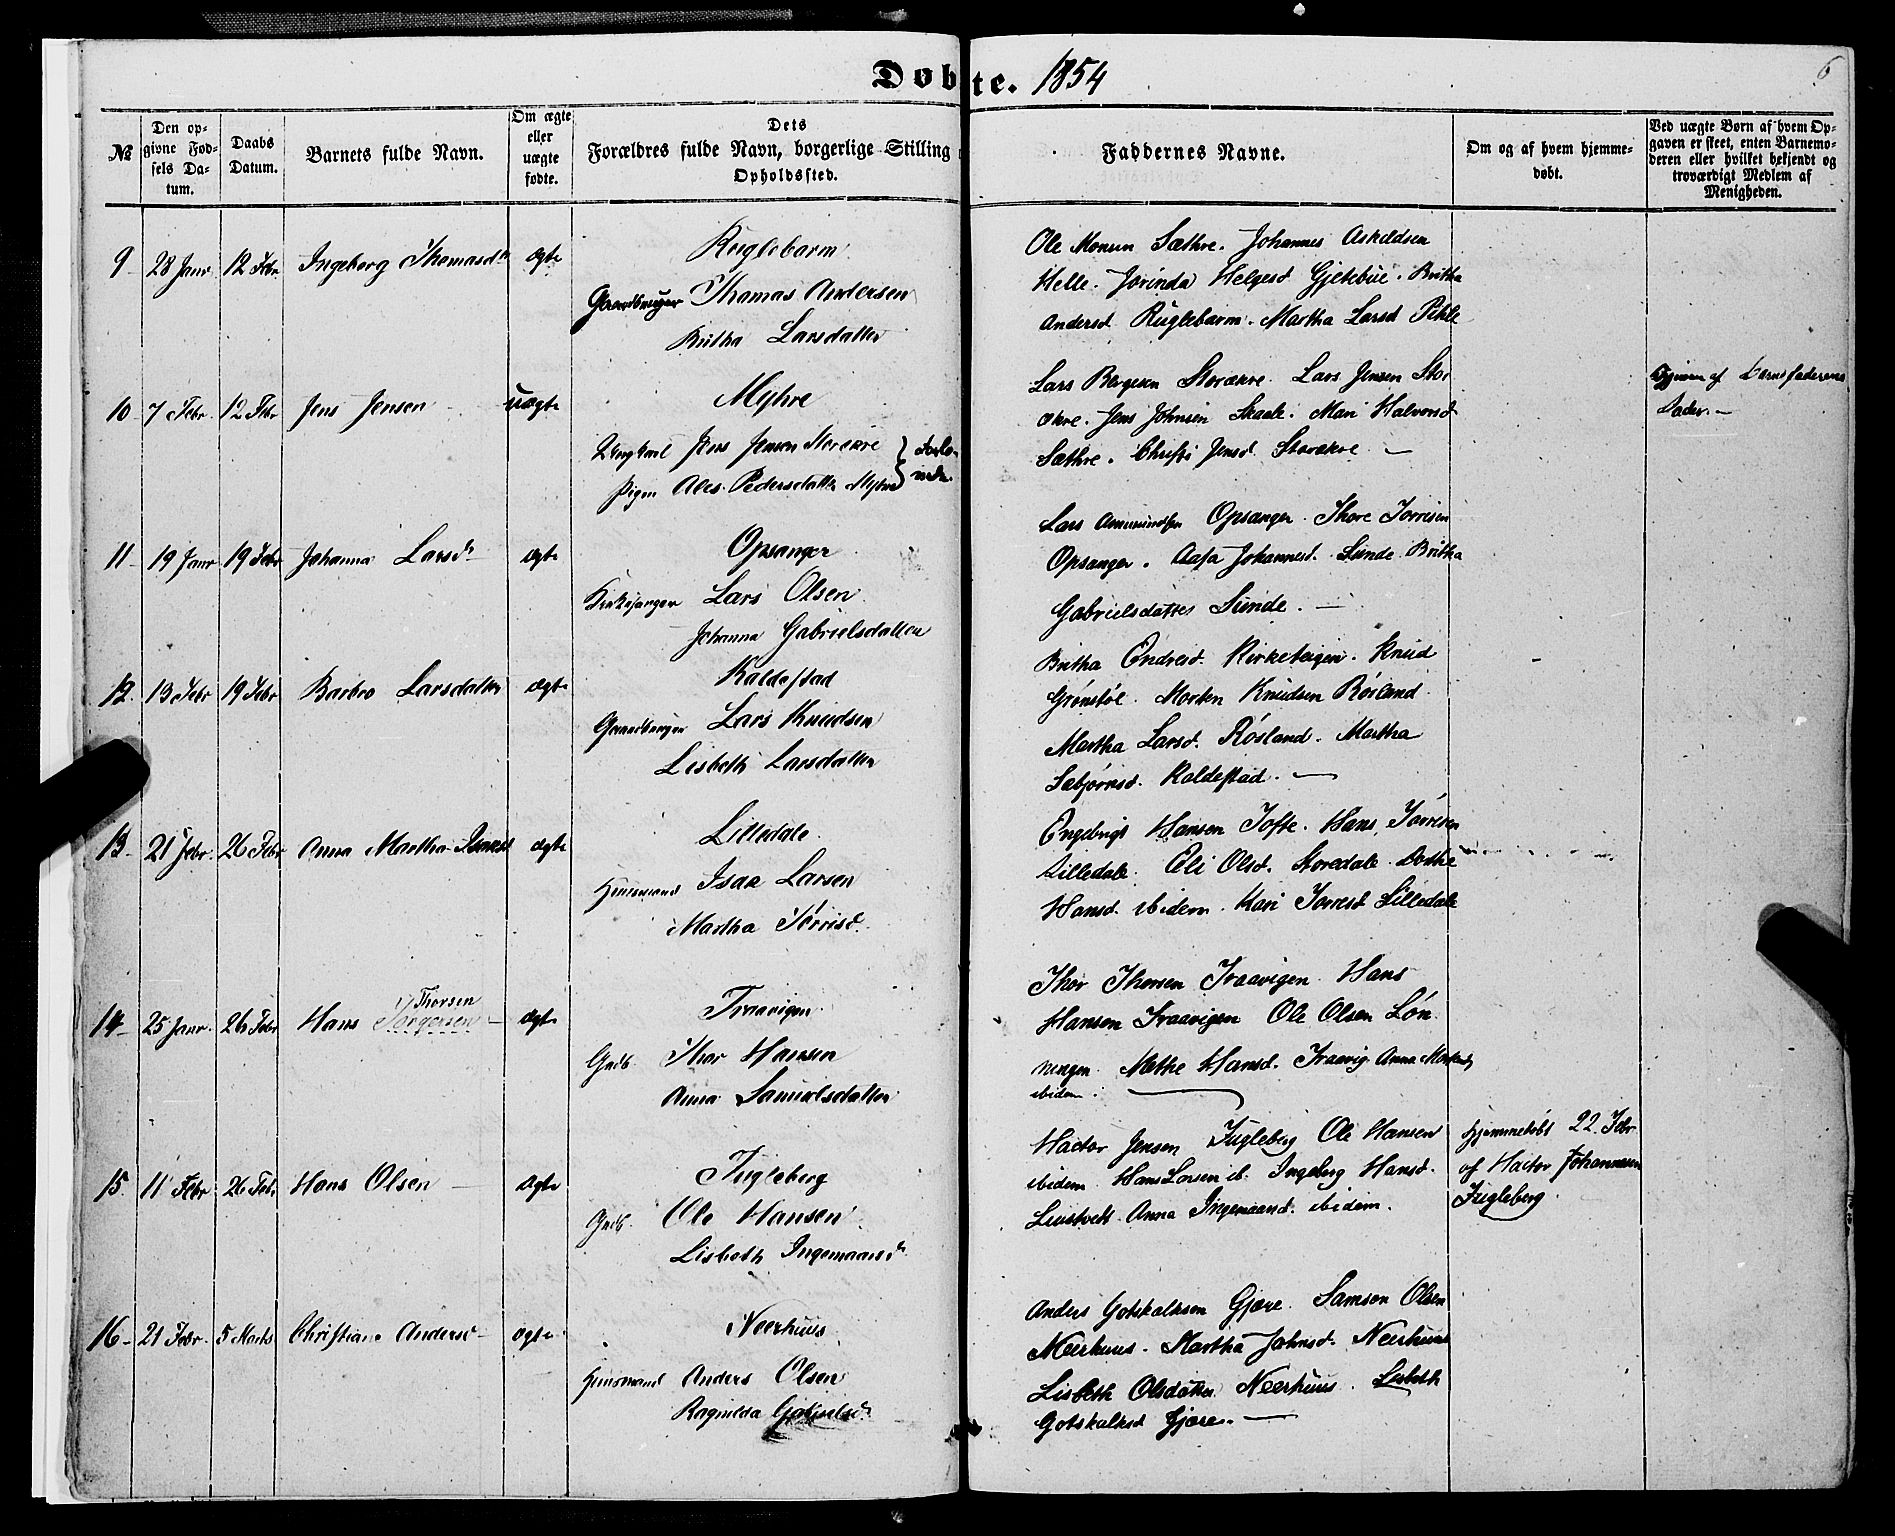 Døbte. 1854
6
№
Den op-
givne Fød-
sels Da-
tum.
Daabs
Datum.
Barnets fulde Navn.
Om ægte
eller
uægte
fødte.
Dets
Forældres fulde Navn, borgerlige Stilling
Opholdssted.
Faddernes Navne.
Om og af hvem hjemme-
døbt.
Ved uægte Børn af hvem Op-
gaven er skeet, enten Barnemo-
deren eller hvilket bekjendt og
troværdigt Medlem af
Menigheden.
9 28 Janr 12 Febr Ingeborg Thomasdr ægte
Ruglebarm
Gaardbruger Thomas Andersen
Britha Larsdatter
Ole Monsen Sæthre. Johannes Askeldsen
Helle. Jorinda Helgesd Gjettebøe. Britha
Andersd Ruglebarm. Martha Larsd
10 7 Febr. 12 Febr Jens Jensen uægte
Myhre
Ungkarl Jens Jensen Storækre
Pigen Ales Pedersdatter Myhre
Lars Børgesen Storækre. Lars Jensen Stor
ækre. Jens Johnsen Skaale. Mari Halvorsd
Sæthre. Christi Jensd. Storækre —
af Barnefaderens
Fader. —
11 19 Janr 19 Febr Johanna Larsdr ægte
Opsanger
Kirkesanger Lars Olsen
Johanna Gabrielsdatter
Lars Amundsen Opsanger. Thore Torrisen
Opsanger. Aasa Johannesd. Sunde Britha
Gabrielsdatter Sunde. —
12. 13 Febr 19 Febr Barbro Larsdatter ægte
Kaldestad
Gaardbruger Lars Knudsen
Lisbeth Larsdatter
Britha Endresd. Kirketeigen. Knud
Grønstøl. Morten Knudsen Røsland.
Martha Larsd. Røsland. Martha
Sebjørnsd. Kaldestad. —
13 21 Febr. 26 Febr Anna Martha Isaksd ægte
Lilledale
Huusmand Isac Larsen
Martha Tørrisd.
Engebrigt Hansen Tofte. Hans Tørrisen
Lilledale. Eli Olsd. Storedale. Dorthe
Hansd. ibidem. Kari Torresd Lilledale
14 25 Janr. 26 Febr Hans Thorsen ægte
Traavigen
Gndb. Thor Hansen
Anna Samuelsdatter
Thor Thorsen Traavigen. Hans
Hansen Traavigen Ole Olsen Løn
ningen. Methe Hansd. Traavig. Anna
ibidem.
15. 11 Febr 26 Febr Hans Olsen ægte
Fugleberg
Gndb. Ole Hansen
Lisbeth Ingemaansdr
Hactor Jensen Fugleberg Ole Hansen
ibidem. Hans Larsen ib. Ingeborg Hansd.
Anna Ingemaansd. ibidem.
Hjemmedøbt 22. Febr
af Hactor Johannesen
Fugleberg.
16 21 Febr. 5 Marts Christiane Andersd ægte
Neerhuus
Huusmand Anders Olsen
Ragnilda
Anders Gotskalksen Gjære. Samson Olsen
Neerhuus. Martha Johnsd. Neerhuus
Lisbeth Olsdatter Neerhuus. Lisbeth
Gotskalksd Gjære. —